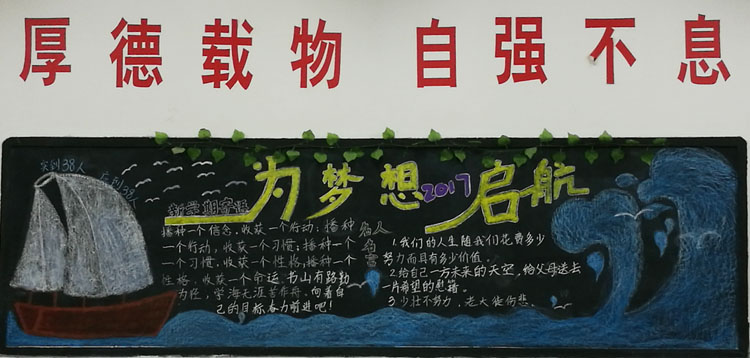 厚德载物 自强不息
实到38人
应到38人
为梦想2017启航
新学期寄语
播种一个信念,收获一个行动;播种
一个行动,收获一个习惯;播种一个
一个习惯,收获一个性格,播种一个
性格,收获一个命运。书山有路勤
为径,学海无涯苦作舟。向着自
己的目标奋力前进吧!
名人名言
1.我们的人生随我们花费多少
努力而具有多少价值。
2.给自己一方未来的天空,给父母送去
一片希望的慰籍。
3.少壮不努力,老大徒伤悲。